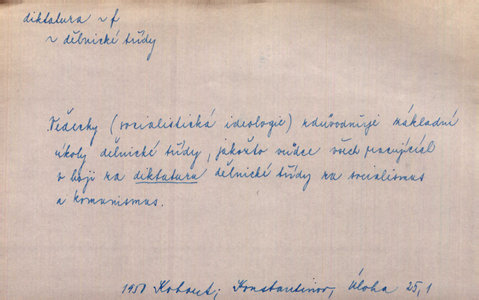 diktatura ~ f
~ dělnické třídy
Vědecky (socialistická ideologie) zdůvodňuje základní
úkoly dělnické třídy, jakožto vůdce všech pracujících
v boji za diktaturu dělnické třídy za socialismus
a komunismus.
1950 Kohout; Konstantinov, Úloha 25,1